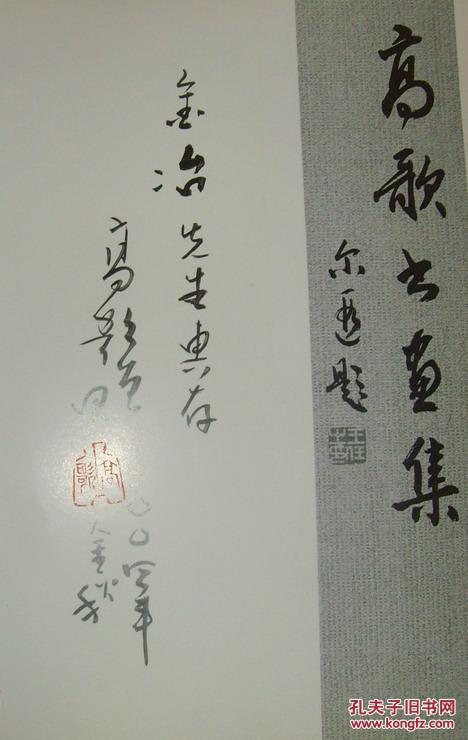 高歌书画集
尔重题
金冶先生惠存
高歌
二〇〇四年
金秋
孔夫子旧书网
kongfz.com